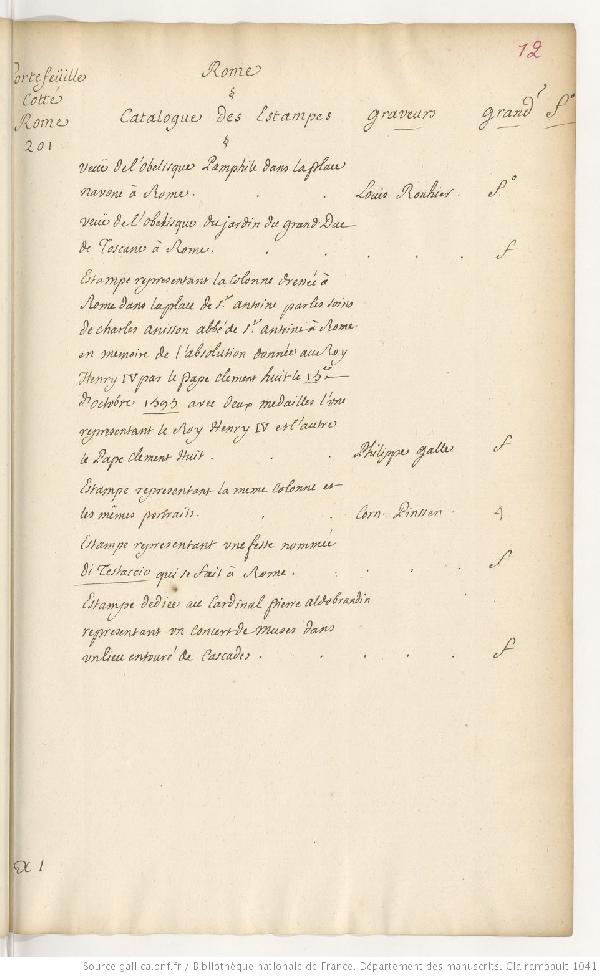 12
Portefeüille
Cotté
Rome
201
Rome
§
Catalogue des Estampes graveurs grand.r f.o
§
veüe de l'obelisque Pamphile dans la place
navone à Rome. Louis Rouhier. f.o
veüe de l'obelisque du jardin du grand Duc
de Toscane à Rome. f
Estampe representant la colonne dressée à
Rome dans la place de S.t antoine par les soins
de charles anisson abbé de S.t antoine à Rome
en memoire de l'absolution donnée au Roy
Henry IV par le Pape clement huit le
d'octobre 1595 avec deux medailles l'une
representant le Roy Henry IV et l'autre
le Pape clement Huit. Philippe galle f
Estampe representant la meme colonne et
les mêmes portraits. Corn. Pinssen. 4
Estampe representant une feste nommée
di Testaccio qui se fait à Rome. f
Estampe dediée au Cardinal pierre aldobrandin
representant un Concert de Muses dans
un lieu entouré de Cascades. f
EX 1
Source gallica.bnf.fr / Bibliothèque nationale de France. Département des manuscrits. Clairambault 1041